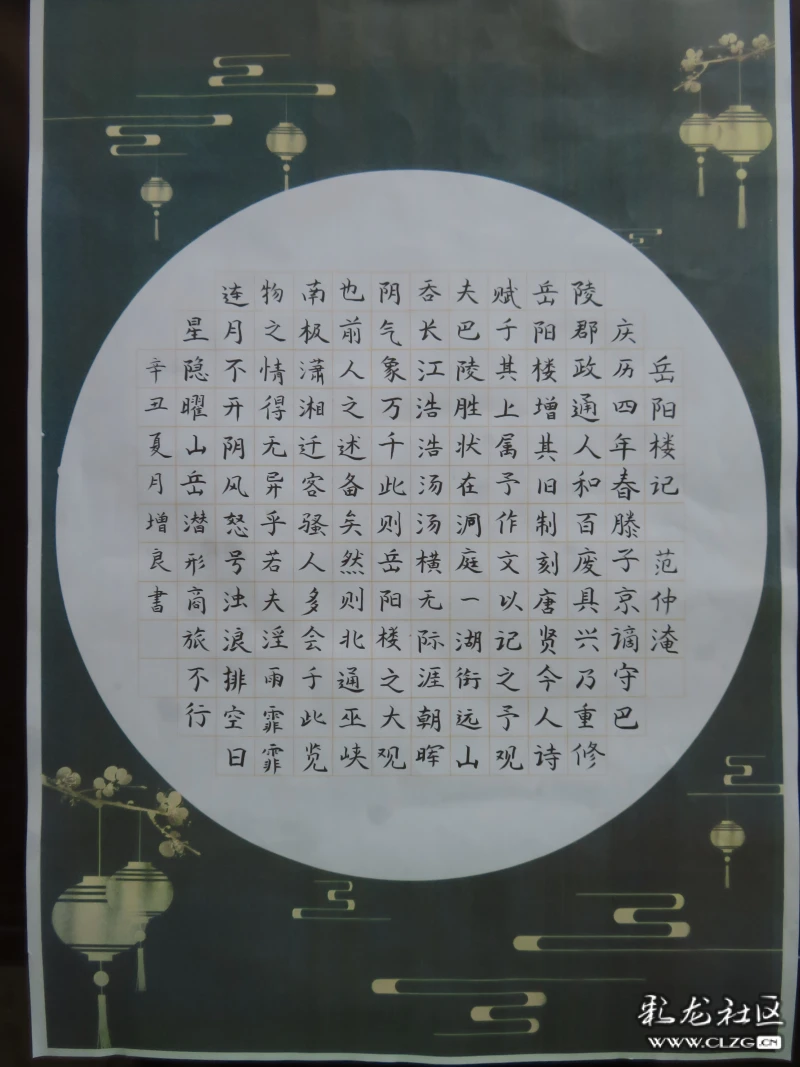 岳阳楼记 范仲淹
庆历四年春滕子京谪守巴
陵郡政通人和百废具兴乃重修
岳阳楼增其旧制刻唐贤今人诗
赋于其上属予作文以记之予观
夫巴陵胜状在洞庭一湖衔远山
吞长江浩浩汤汤横无际涯朝晖
阴气象万千此则岳阳楼之大观
也前人之述备矣然则北通巫峡
南极潇湘迁客骚人多会于此览
物之情得无异乎若夫淫雨霏霏
连月不开阴风怒号浊浪排空日
星隐曜山岳潜形商旅不行
辛丑夏月增良书
彩龙社区
WWW.CLZG.CN